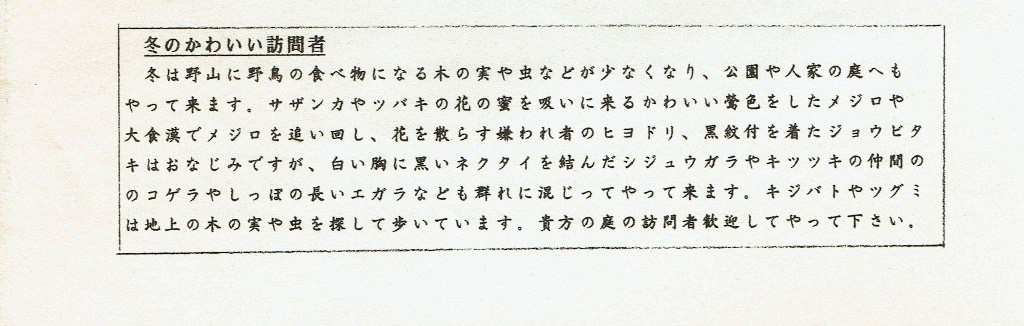 冬のかわいい訪問者
冬は野山に野鳥の食べ物になる木の実や虫などが少なくなり、公園や人家の庭へも
やって来ます。サザンカやツバキの花の蜜を吸いに来るかわいい鶯色をしたメジロや
大食漢でメジロを追い回し、花を散らす嫌われ者のヒヨドリ、黒紋付を着たジョウビタ
キはおなじみですが、白い胸に黒いネクタイを結んだシジュウガラやキツツキの仲間の
のコゲラやしっぽの長いエガラなども群れに混じってやって来ます。キジバトやツグミ
は地上の木の実や虫を探して歩いています。貴方の庭の訪問者歓迎してやって下さい。